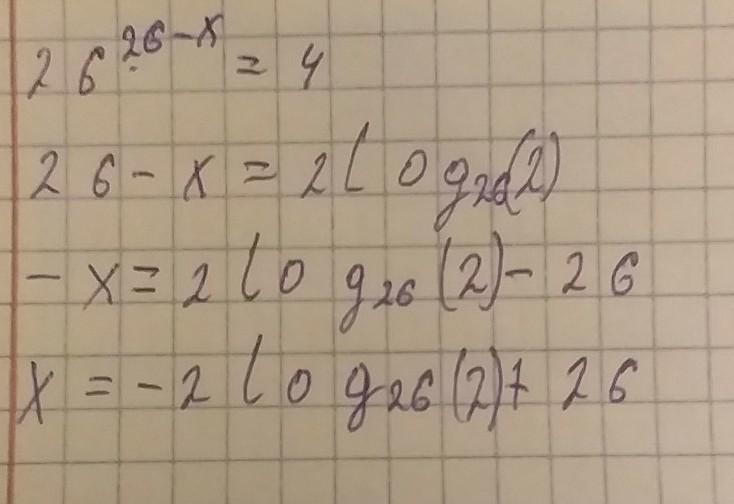 26^{26-x} = 4
26 - x = 2 log_{26}(2)
- x = 2 log_{26}(2) - 26
x = -2 log_{26}(2) + 26